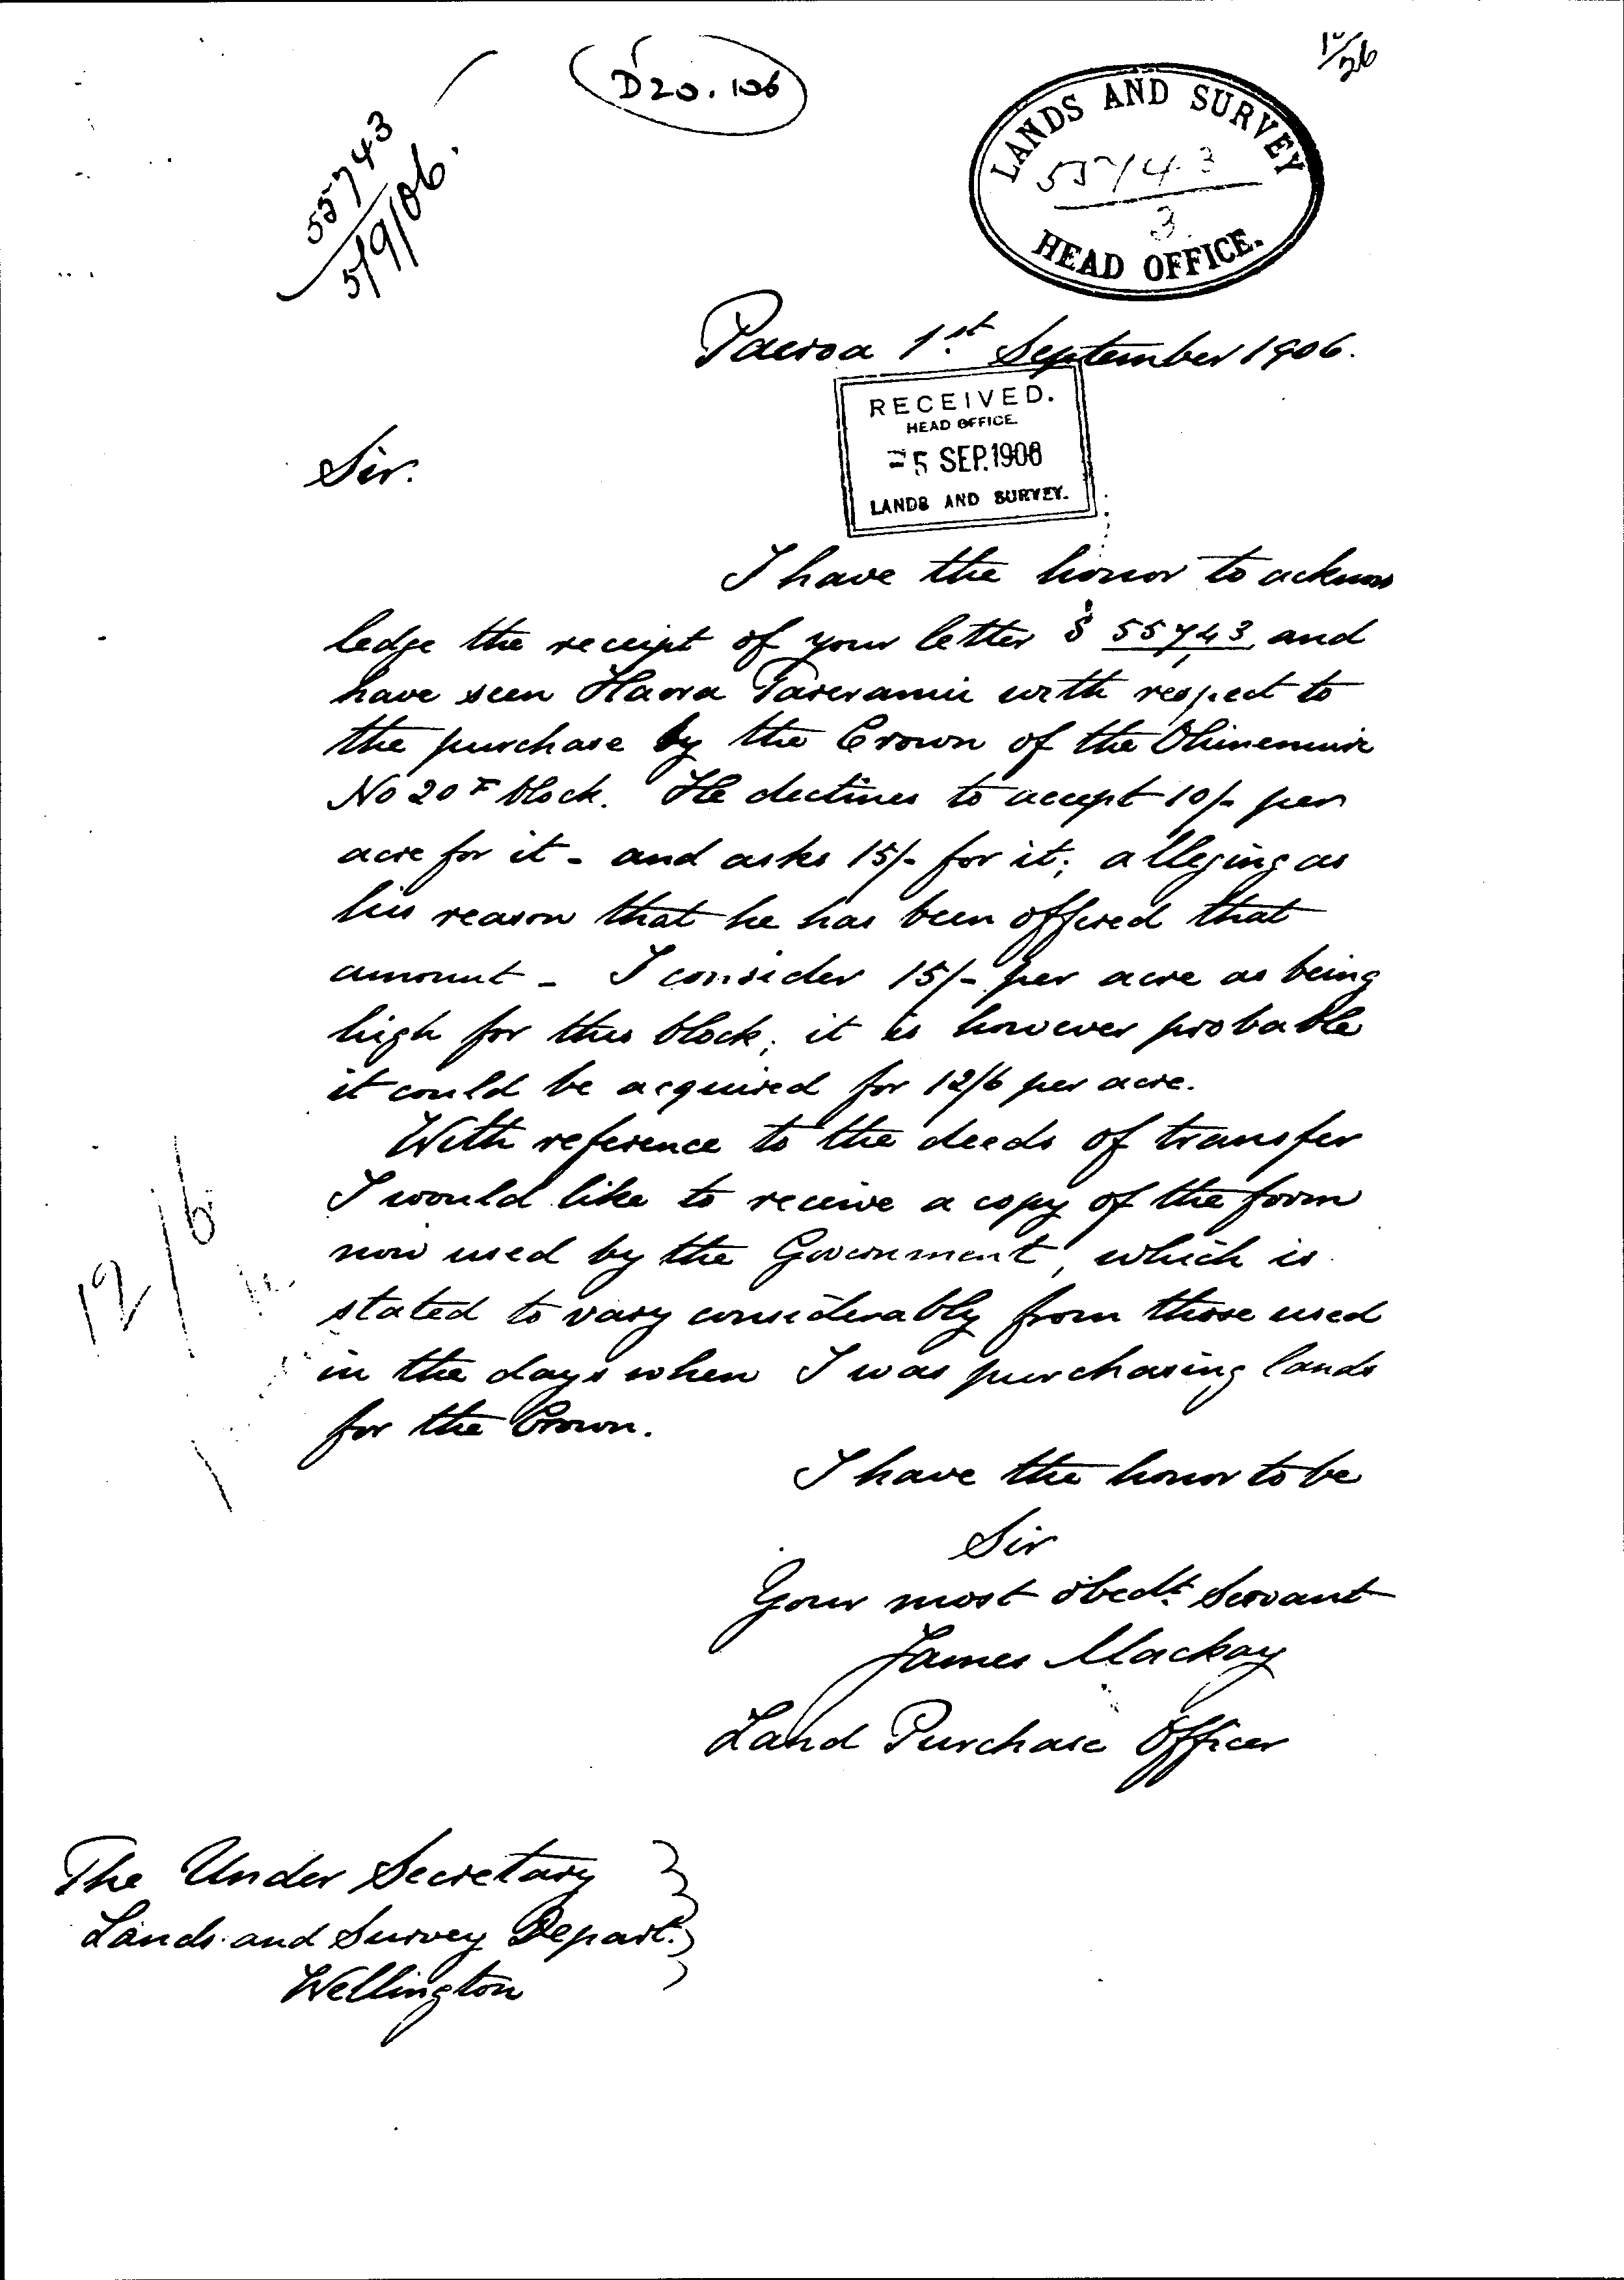 D20.106
10/26
55743
5/9/06.
LANDS AND SURVEY
55743
3.
HEAD OFFICE.
Paeroa 1st September 1906.
RECEIVED.
HEAD OFFICE.
-5 SEP.1906
LANDS AND SURVEY.
Sir.
I have the honor to acknow
ledge the receipt of your letter 55743 and
have seen Haora Tareranui with respect to
the purchase by the Crown of the Ohinemuri
No 20 F block. He declines to accept 10/- per
acre for it - and asks 15/- for it; alleging as
his reason that he has been offered that
amount - I consider 15/- per acre as being
high for this block; it is however probable
it could be acquired for 12/6 per acre.
With reference to the deeds of transfer
I would like to receive a copy of the form
now used by the Government, which is
stated to vary considerably from those used
in the days when I was purchasing lands
for the Crown.
12/6
I have the honor to be
Sir
Your most obedt. Servant
James Mackay
Land Purchase Officer
The Under Secretary
Lands and Survey Depart.
Wellington